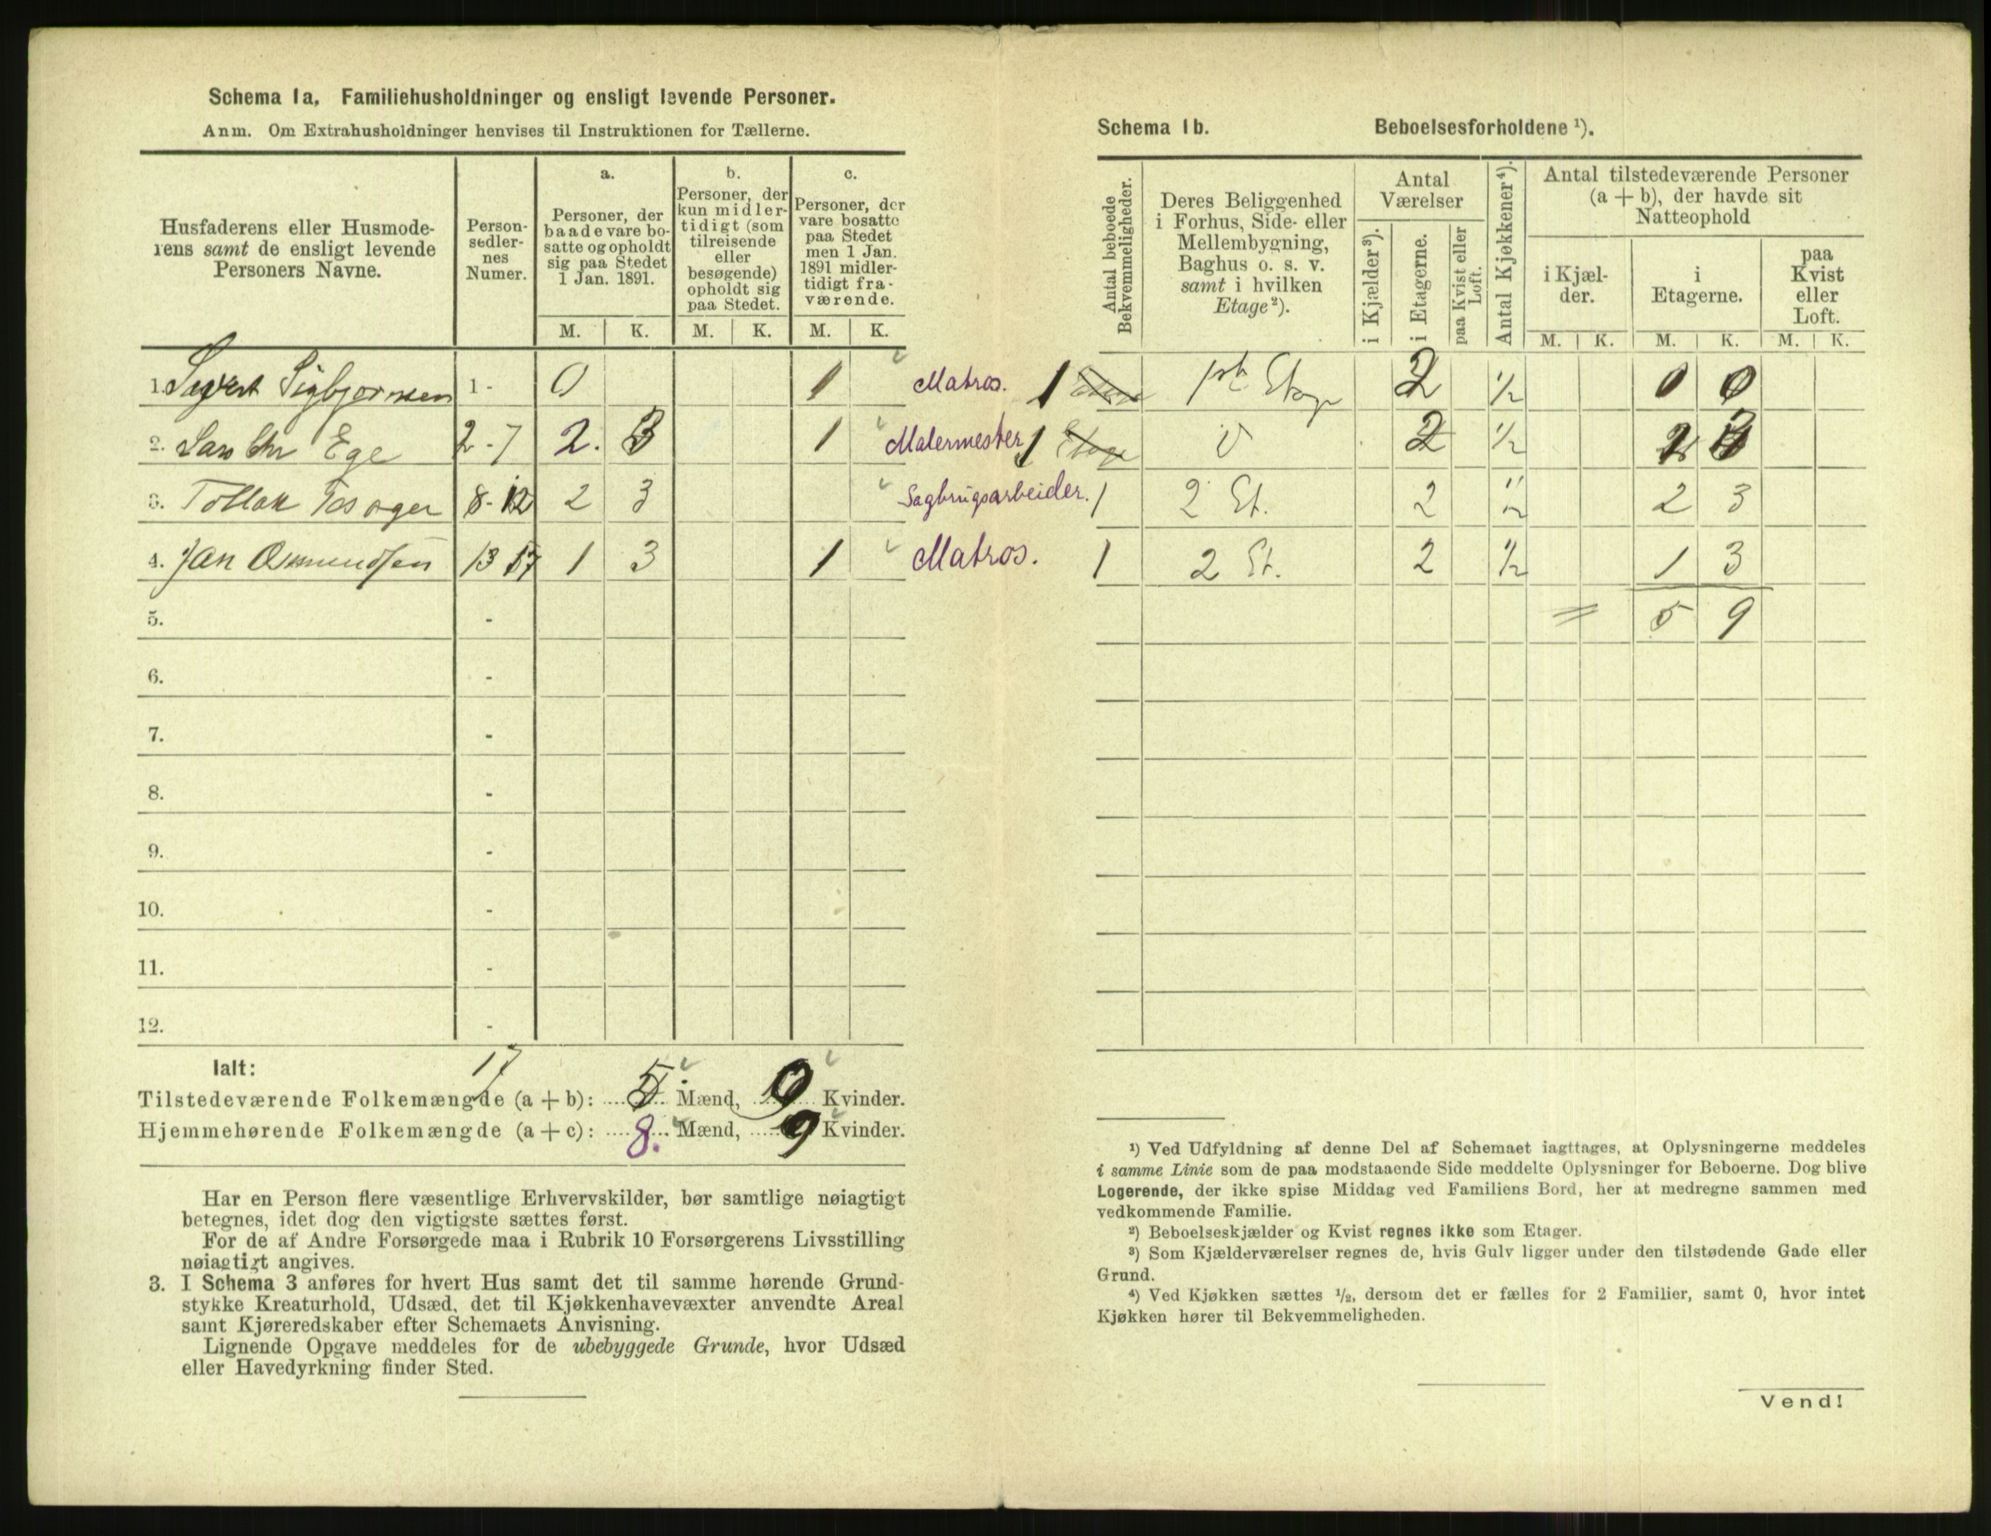 Schema 1a. Familiehusholdninger og ensligt levende Personer.
Anm. Om Extrahusholdninger henvises til Instruktionen for Tællerne.
Husfaderens eller Husmoderens samt de ensligt levende Personers Navne.
Person-sedlernes Numer.
a.
Personer, der baade vare bosatte og opholdt sig paa Stedet 1 Jan. 1891.
b.
Personer, der kun midlertidigt (som tilreisende eller besøgende) opholdt sig paa Stedet.
c.
Personer, der vare bosatte paa Stedet men 1 Jan. 1891 midlertidigt fraværende.
M. K. M. K. M. K.
1. Sigbjørnsen 1 - 0 1 Matros.
2. Lars Chr Ege 2 - 7 2. 3 1 Malermester
3. Tollak 8 - 12 2 3 Sagbrugsarbeider.
4. Jan Osmundsen 13 17 1 3 1 Matros.
5. -
6. -
7. -
8. -
9. -
10. -
11. -
12. -
Ialt: 17
Tilstedeværende Folkemængde (a + b): 5 Mænd, 9 Kvinder.
Hjemmehørende Folkemængde (a + c): 8. Mænd, 9 Kvinder.
Har en Person flere væsentlige Erhvervskilder, bør samtlige nøiagtigt
betegnes, idet dog den vigtigste sættes først.
For de af Andre Forsørgede maa i Rubrik 10 Forsørgerens Livsstilling
nøiagtigt angives.
3. I Schema 3 anføres for hvert Hus samt det til samme hørende Grund-
stykke Kreaturhold, Udsæd, det til Kjøkkenhavevæxter anvendte Areal
samt Kjøreredskaber efter Schemaets Anvisning.
Lignende Opgave meddeles for de ubebyggede Grunde, hvor Udsæd
eller Havedyrkning finder Sted.
Schema 1b. Beboelsesforholdene ¹).
Antal beboede Bekvemmeligheder.
Deres Beliggenhed i Forhus, Side- eller Mellembygning, Baghus o. s. v. samt i hvilken Etage²).
Antal Værelser
i Kjælder³).
i Etagerne.
paa Kvist eller Loft.
Antal Kjøkkener⁴).
Antal tilstedeværende Personer (a + b), der havde sit Natteophold
i Kjælder.
i Etagerne.
paa Kvist eller Loft.
M. K. M. K. M. K.
1 1ste Etage 2 ½ 0 0
1 Etage 2 ½ 2 3
1 2 Et. 2 ½ 2 3
1 2 Et. 2 ½ 1 3
= 5 9
¹) Ved Udfyldning af denne Del af Schemaet iagttages, at Oplysningerne meddeles
i samme Linie som de paa modstaaende Side meddelte Oplysninger for Beboerne. Dog blive
Logerende, der ikke spise Middag ved Familiens Bord, her at medregne sammen med
vedkommende Familie.
²) Beboelseskjælder og Kvist regnes ikke som Etager.
³) Som Kjælderværelser regnes de, hvis Gulv ligger under den tilstødende Gade eller
Grund.
⁴) Ved Kjøkken sættes ½, dersom det er fælles for 2 Familier, samt 0, hvor intet
Kjøkken hører til Bekvemmeligheden.
Vend!